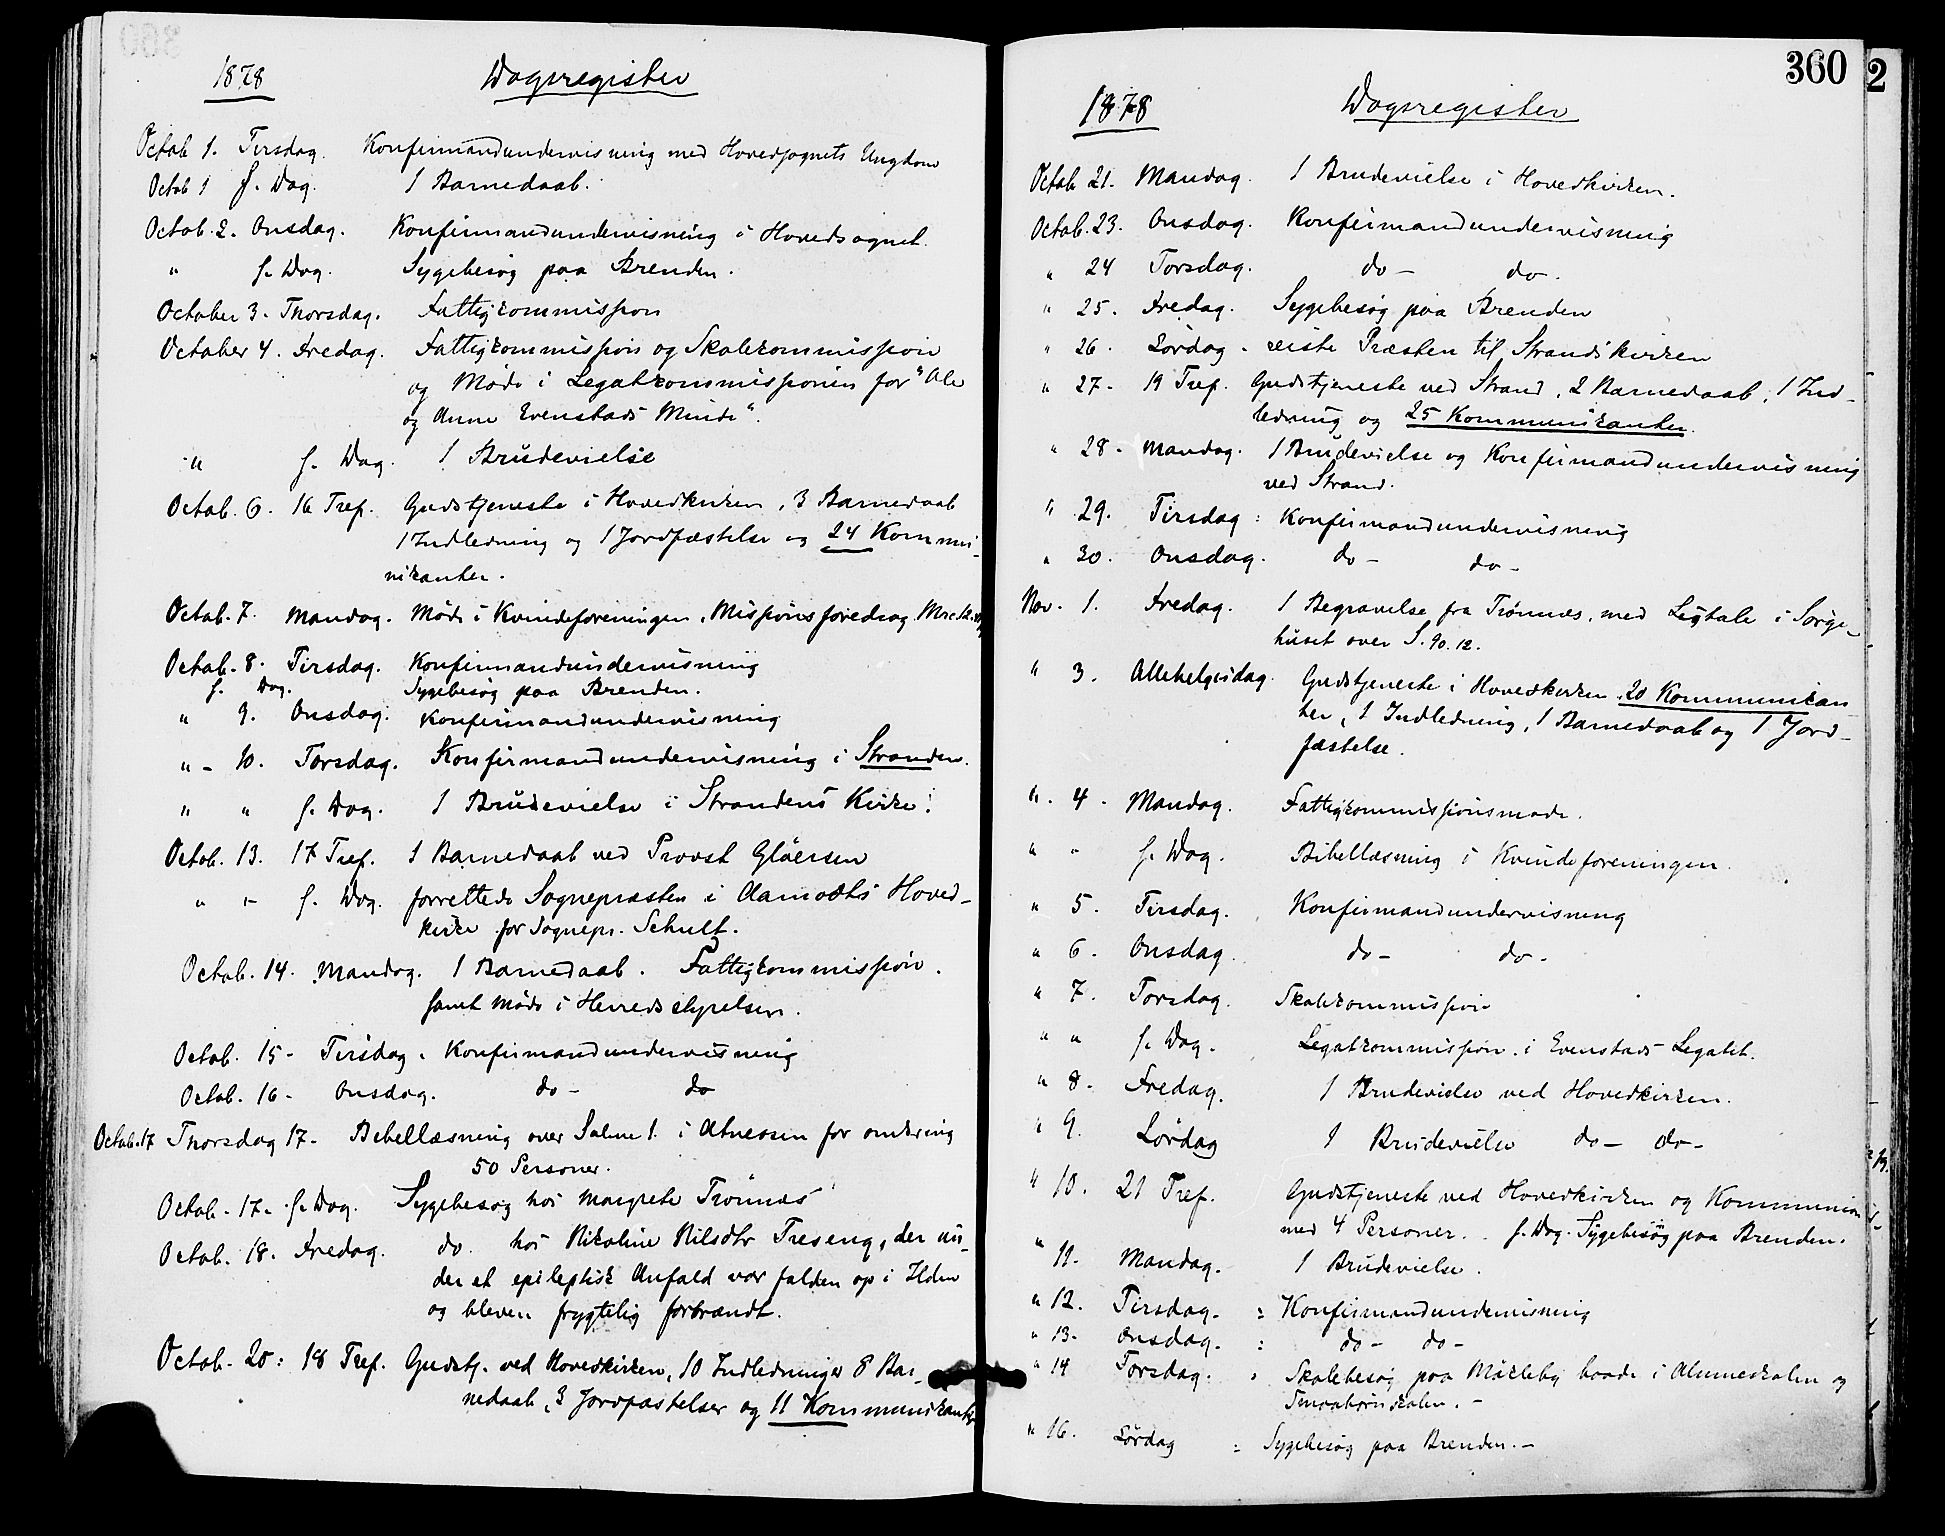 1878 Dagsregister
Octob 1. Tirsdag. Konfirmandundervisning med Hovedsognets Ungdom
Octob 1 s. Dag. 1 Barnedaab.
Octob. 2. Onsdag. Konfirmandundervisning i Hovedsognet.
" s. Dag. Sygebesøg paa Brenden.
October 3. Thorsdag. Fattigkommission
October 4. Fredag. Fattigkommission og Skolekommission
og Møde i Legatkommissionen for "Ole
og Anne Evenstads Minde".
" s. Dag. 1 Brudevielse
Octob. 6. 16 Tref. Gudstjeneste i Hovedkirken, 3 Barnedaab
1 Indledning og 1 Jordfæstelse og 24 Kommu-
nikanter.
Octob. 7. Mandag. Møde i Kvindeforeningen. Missionsforedrag.
Octob. 8. Tirsdag. Konfirmandundervisning
s. Dag. Sygebesøg paa Brenden.
" 9. Onsdag. Konfirmandundervisning
" - 10. Torsdag. Konfirmandundervisning i Stranden.
" " s. Dag. 1 Brudevielse i Strandens Kirke.
Octob. 13. 17 Tref. 1 Barnedaab ved Provst Gløersen
" - s. Dag. forrettede Sognepræsten i Aamodts Hoved-
kirke for Sognepr. Schult.
Octob. 14. Mandag. 1 Barnedaab. Fattigkommission.
samt Møde i Herredsstyrelsen.
Octob. 15- Tirsdag. Konfirmandundervisning
Octob. 16- Onsdag. do- do
Octob. 17 Thorsdag 17- Bibellæsning over Salme 1. i Atneosen for omkring
50 Personer.
Octob. 17. s. Dag. Sygebesøg hos Margrete Trønnæs
Octob. 18. Fredag. do. hos Nikoline Nilsdtr Treseng, der un-
der et epileptisk Anfald var falden op i Ilden
og bleven frygtelig forbrændt.
Octob. 20: 18 Tref. Gudstj. ved Hovedkirken, 10 Indledninger 8 Bar-
nedaab, 3 Jordfæstelser og 11 Kommunikanter
360
2
1878 Dagsregister
Octob 21. Mandag. 1 Brudevielse i Hovedkirken.
Octob. 23. Onsdag. Konfirmandundervisning
" 24 Torsdag. do- do.
" 25. Fredag. Sygebesøg paa Brenden
" 26. Lørdag. reiste Præsten til Strands kirken
" 27- 19 Tref. Gudstjeneste ved Strand, 2 Barnedaab, 1 Ind-
ledning og 25 Kommunikanter.
" 28- Mandag. 1 Brudevielse og Konfirmandundervisning
ved Strand.
" 29. Tirsdag: Konfirmandundervisning
" 30. Onsdag. do- do-
Nov. 1. Fredag. 1 Begravelse fra Trønnæs, med Ligtale i Sørge-
huset over S. 90.12.
" 3. Allehelgensdag. Gudstjeneste i Hovedkirken. 20 Kommunikan
ter, 1 Indledning, 1 Barnedaab og 1 Jord-
fæstelse.
" 4. Mandag. Fattigkommissionsmøde.
" " s. Dag. Bibellæsning i Kvindeforeningen.
" 5. Tirsdag. Konfirmandundervisning
" 6. Onsdag. do- do-
" 7. Torsdag. Skolekommission
" " s. Dag. Legatkommission. i Evenstads Legatet.
" 8. Fredag. 1 Brudevielse ved Hovedkirken.
" 9. Lørdag 1 Brudevielse do- do-
" 10. 21 Tref. Gudstjeneste ved Hovedkirken og Kommunion
med 4 Personer. s. Dag. Sygebesøg paa Brenden.
" 11. Mandag. 1 Brudevielse.
" 12. Tirsdag. : Konfirmandundervisning
" 13. Onsdag. : do- do-
" 14 Torsdag. Skolebesøg paa Møkleby baade i Almueskolen og
Smaabørnskolen.-
" 16. Lørdag = Sygebesøg paa Brenden.-